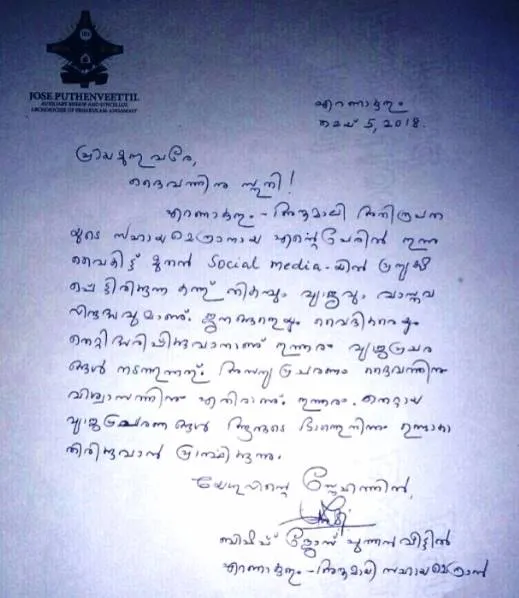 JOSE PUTHENVEETTIL
AUXILIARY BISHOP AND SYNCELLUS
ARCHDIOCESE OF ERNAKULAM-ANGAMALY
എറണാകുളം
മെയ് 5, 2018.
പ്രിയമുള്ളവരേ,
ദൈവത്തിനു സ്തുതി!
എറണാകുളം - അങ്കമാലി അതിരൂപത
യുടെ സഹായമെത്രാനായ എന്റെ പേരിൽ ഇന്നു
വൈകിട്ട് മുതൽ Social media-യിൽ പ്രത്യക്ഷ
പ്പെട്ടിരിക്കുന്ന കത്ത് തികച്ചും വ്യാജവും വാസ്തവ
വിരുദ്ധവുമാണ്. ജനങ്ങളെയും വൈദികരെയും
തെറ്റിദ്ധരിപ്പിക്കുവാനാണ് ഇത്തരം വ്യാജപ്രചര
ണങ്ങൾ നടത്തുന്നത്. അസത്യപ്രചരണം ദൈവത്തിനും
വിശ്വാസത്തിനും എതിരാണ്. ഇത്തരം തെറ്റായ
വ്യാജപ്രചരണങ്ങൾ ആരുടെ ഭാഗത്തുനിന്നും ഉണ്ടാകാ
തിരിക്കുവാൻ പ്രാർത്ഥിക്കുന്നു.
യേശുവിന്റെ സ്നേഹത്തിൽ,
ബിഷപ്പ് ജോസ് പുത്തൻവീട്ടിൽ
എറണാകുളം - അങ്കമാലി സഹായമെത്രാൻ